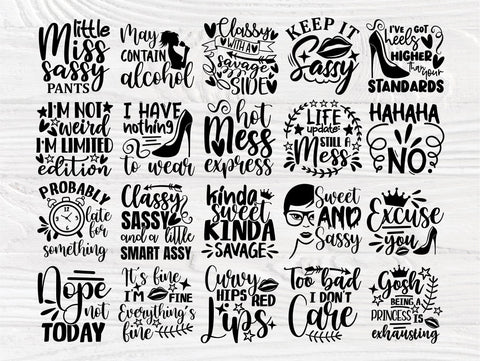 little
Miss
sassy
PANTS
May
CONTAIN
alcohol
Classy
WITH A
savage
SIDE
KEEP IT
Sassy
I'VE GOT
heels
HIGHER
than your
STANDARDS
I'M NOT
weird
I'M LIMITED
edition
I HAVE
nothing
to wear
hot
Mess
express
LIFE
update:
STILL A
Mess
HAHAHA
NO.
PROBABLY
late for
something
Classy
SASSY
and a little
SMART ASSY
kinda
sweet
KINDA
SAVAGE
Sweet
AND
Sassy
Excuse
you
Nope
not
TODAY
It's fine
I'M FINE
Everything's
fine
Curvy
HIPS
RED
Lips
Too bad
I DON'T
Care
Gosh
BEING A
PRINCESS IS
exhausting